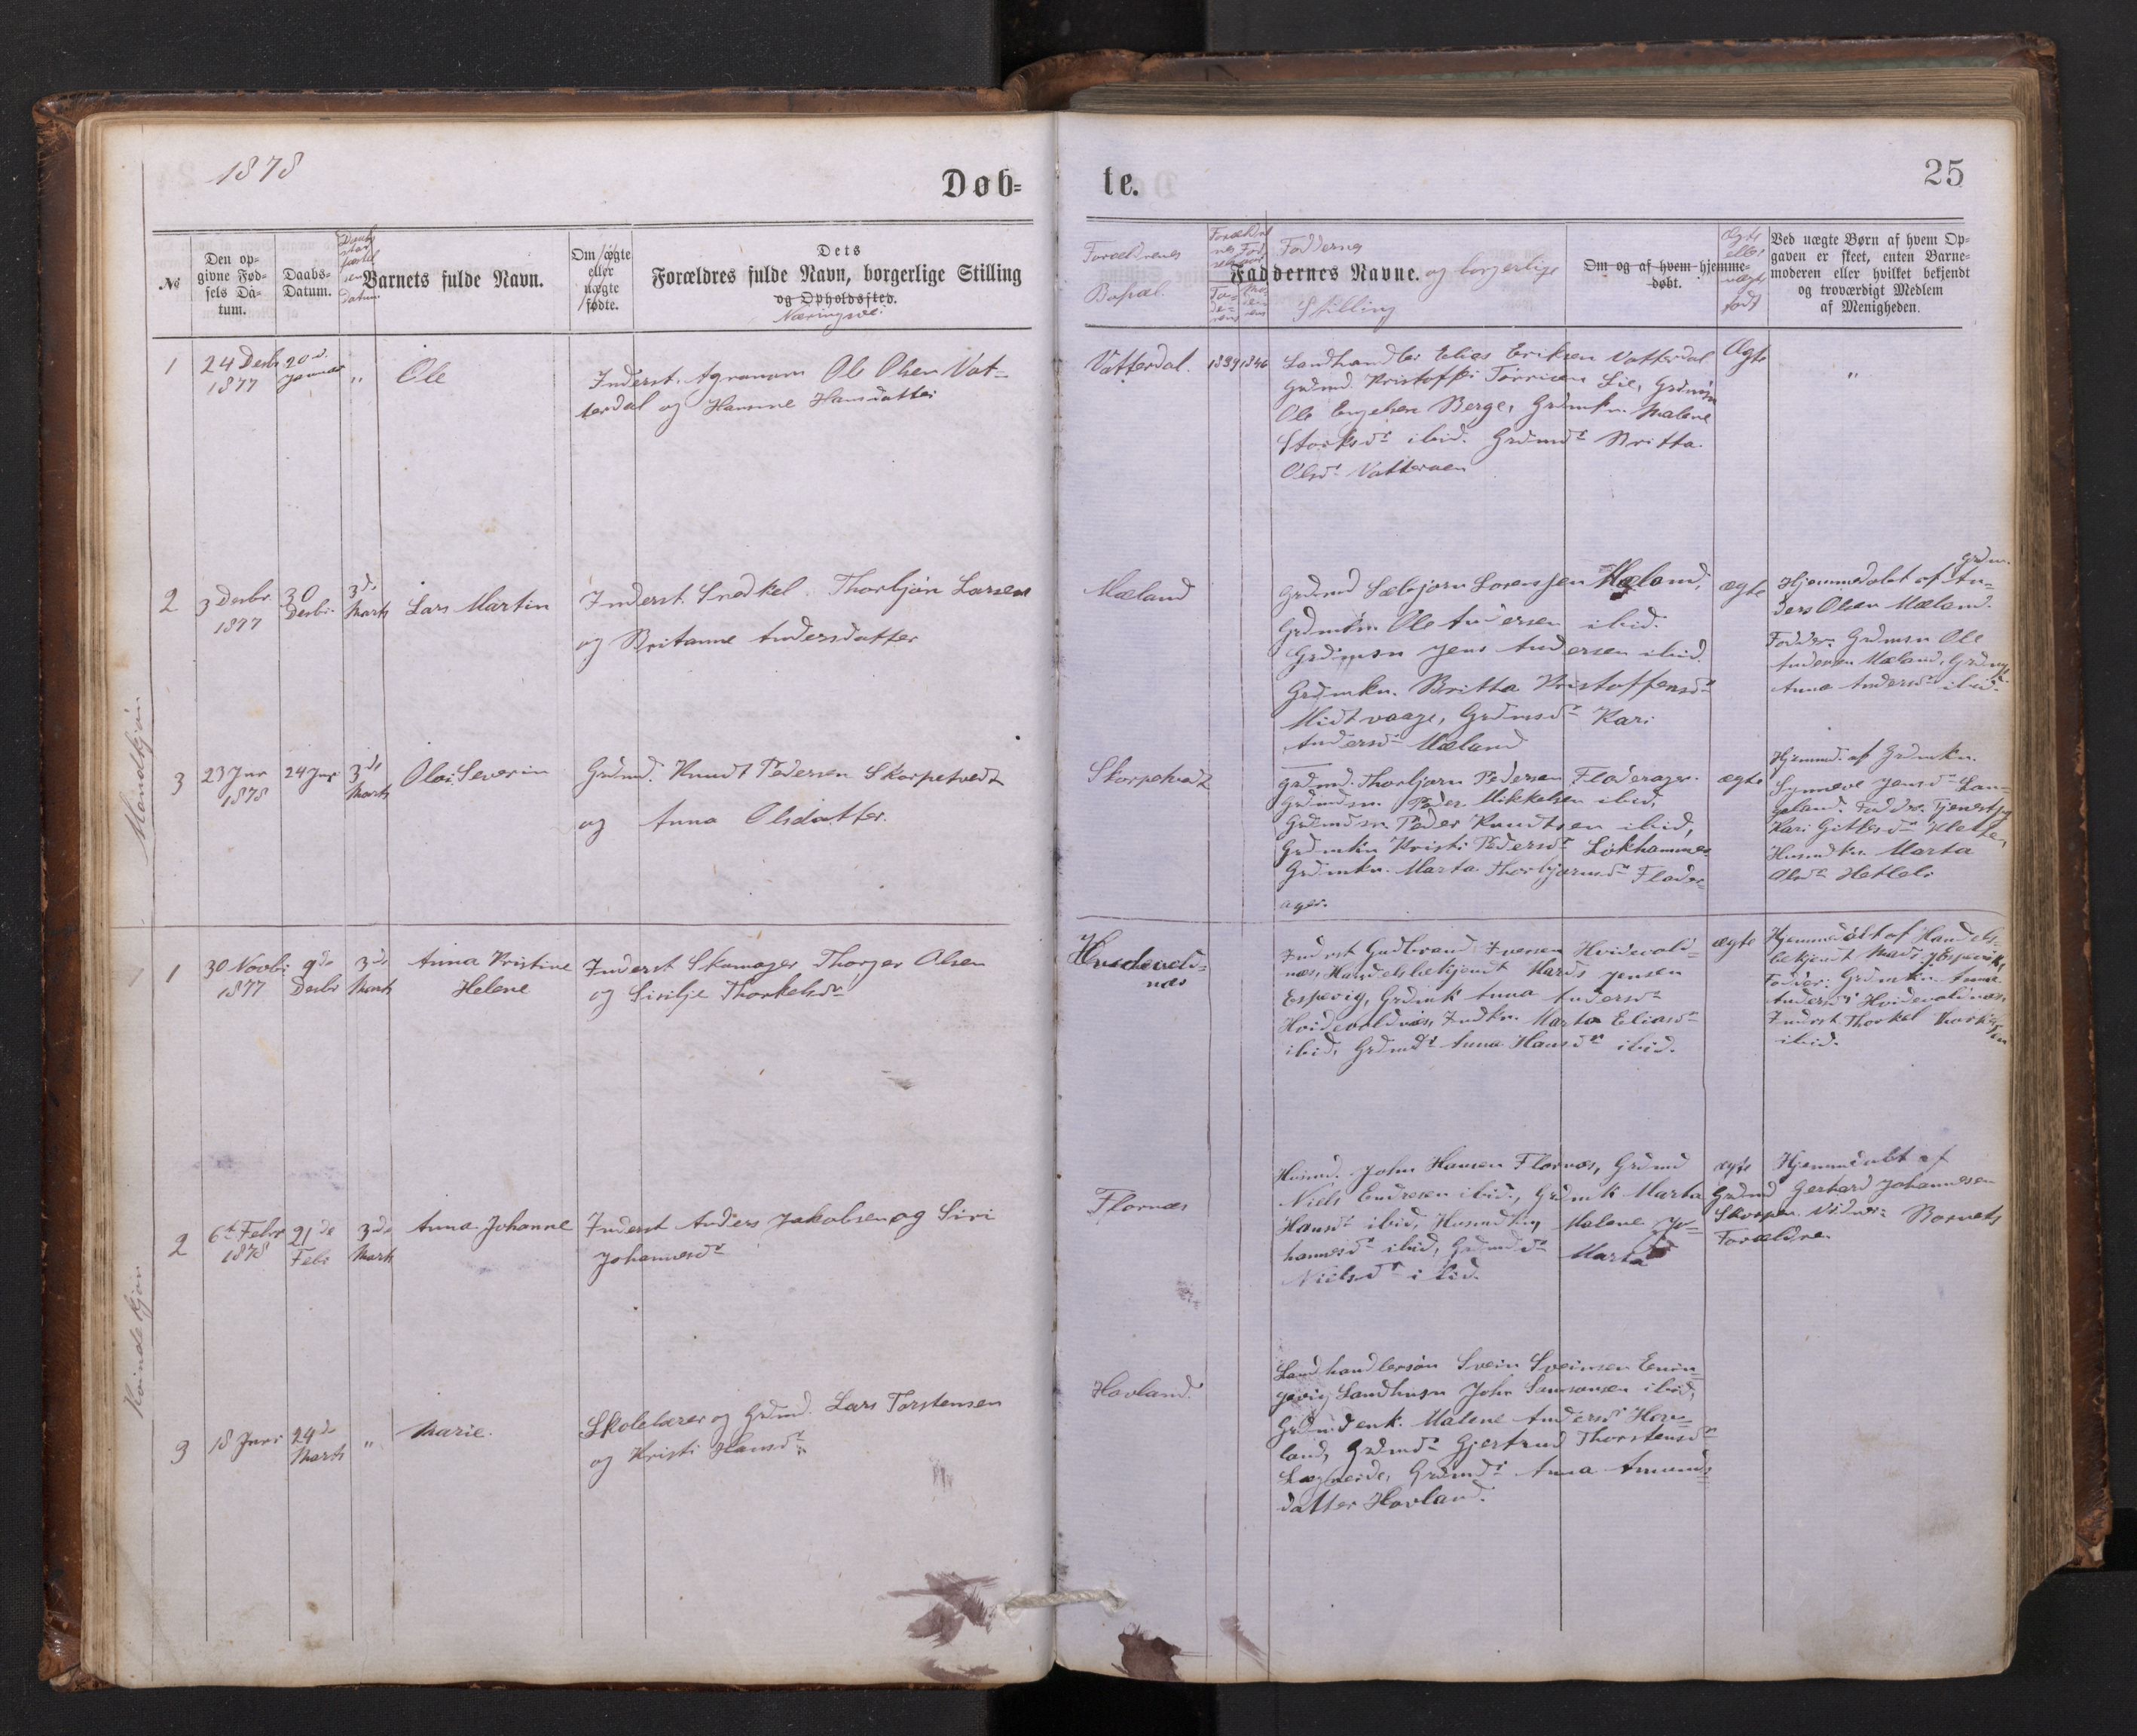 1878
Døb-
te.
25
№
Den op-
givne Fød-
sels Da-
tum.
Daabs-
Datum.
Barnets fulde Navn.
Om ægte
eller
uægte
fødte.
Dets
Forældres fulde Navn, borgerlige Stilling
og Opholdssted.
Næringsvei
Forældrenes
Bopæl.
Faddernes
Faddernes Navne. og borgerlige
Stilling
Om og af hvem hjemme-
døbt.
Ægte
eller
uægte
født
Ved uægte Børn af hvem Op-
gaven er skeet, enten Barne-
moderen eller hvilket bekjendt
og troværdigt Medlem
af Menigheden.
Mandkjøn
1
24 Decbr
1877
20de
Januar
"
Ole
Inderst. Agronom Ole Olsen Vat-
terdal og Hansine Hansdatter
Vatterdal.
1839
1846
Landhandler Elias Eriksen Vatterdal
Grdmd. Kristoffer Tørrisen Lie, Grdmsn
Ole Engelsen Berge, Grdmkn. Malene
Størksdr ibid. Grdmdr Britta
Olsdr Vatteroen
Ægte
"
2
3 Decbr
1877
30
Decbr.
3de
Marts
Lars Martin
Inderst. Snedker. Thorbjørn Larsen
og Britanne Andersdatter
Mæland
Grdmd Sæbjørn Sørensen Mæland,
Grdmsn. Ole Andersen ibid.
Grdmsn Jens Andersen ibid.
Grdmkn. Britta Kristoffersdr
Midtvaage, Grdmsdr Kari
Andersdr Mæland
ægte
Grdm.
Hjemmedøbt af An-
ders Olsen Mæland.
Fadder: Grdmsn Ole
Andersen Mæland, Grdmpk.
Anna Andersdr ibid.
3
23 Jnr
1878
24 Jnr
3de
Marts
Olai Severin
Grdmd. Knudt Pedersen Skorpetvedt
og Anna Olsdatter.
Skorpetvedt
Grdmd. Thorbjørn Pedersen Fladerager.
Grdmdsn Peder Mikkelsen ibid,
Grdmdsn. Peder Knudtsen ibid,
Grdmkn Kristi Pedersdr Løkhammer
Grdmkn. Marta Thorbjørnsdr Flader-
ager.
ægte
Hjemmd. af Grdmkn.
Synneve Jensdr Lan-
geland. Faddr. Tjenestpg
Kari Gittlesdr Klette,
Husmdkn. Marta
Olsdr Hetlelr
Kvindekjøn
1
30 Novbr
1877
9de
Decbr
3de
Marts
Anna Kristine
Helene
Inderst Skomager Thorger Olsen
og Sisilje Thorkelsdr
Hvidevold-
næs
Indrst Gudbrand Iversen Hvidevold-
næs, Handelsbekjendt Mads Jensen
Espevig, Grdmk Anna Andersdr
Hvidevoldnæs, Indkn. Marta Eliasdr
ibid, Grdmdr Anna Hansdr ibid.
ægte
Hjemmedøbt af Handels-
bekjendt Mads Espevik,
Fadder: Grdmkn Anna
Andersdr Hvidevoldnæs,
Inderst. Thorkel Thorkelsen
ibid.
2
6te Febr
1878
21de
Febr
3de
Marts
Anna Johanne
Inderst Anders Jakobsen og Siri
Johannesdr
Flornæs
Husmd. John Hansen Flornæs, Grdmd
Niels Endresen ibid., Grdmk Marta
Hansdr ibid, Husmdkn Malene Jo-
hannesdr ibid, Grdmdr Marta
Nielsdr ibid.
ægte
Hjemmedøbt af
Grdmd Gerhard Johannesen
Skorpen. Vidner: Barnets
Forældre
3
18 Jnr
24de
Marts
"
Marie.
Skolelærer og Grdmd. Lars Torstensen
og Kristi Hansdr
Hovland.
Landhandlersøn Svein Sveinsen Enin-
gevig Landhmsn John Samsonsen ibid,
Grdmdenk. Malene Andersdr Hov-
land, Grdmdr Gjertrud Thorstensdr
Lægreide, Grdmdr Anna Amunds
datter Hovland.